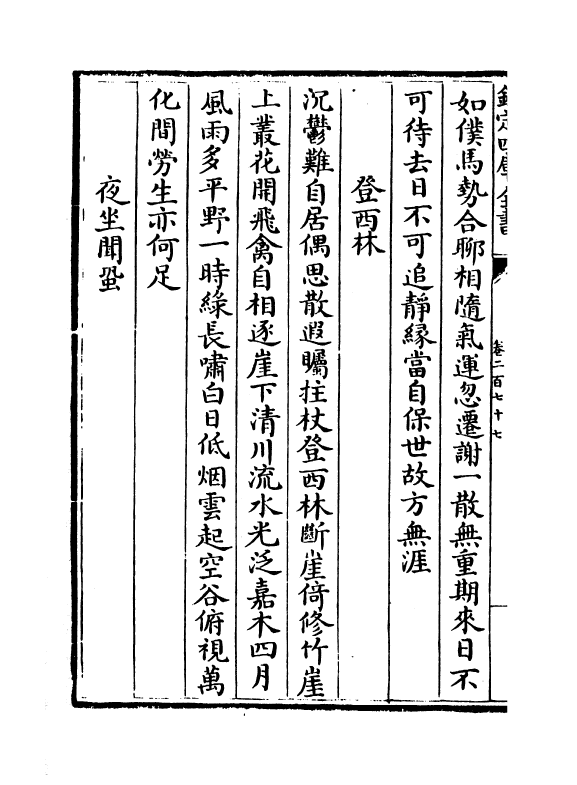 欽定四庫全書
卷二百七十七
如僕馬勢合聊相隨氣運忽遷謝一散無重期來日不
可待去日不可追靜緣當自保世故方無涯
登西林
沉鬱難自居偶思散遐矚拄杖登西林斷崖倚修竹崖
上叢花開飛禽自相逐崖下清川流水光泛嘉木四月
風雨多平野一時綠長嘯白日低烟雲起空谷俯視萬
化間勞生亦何足
夜坐聞蛩